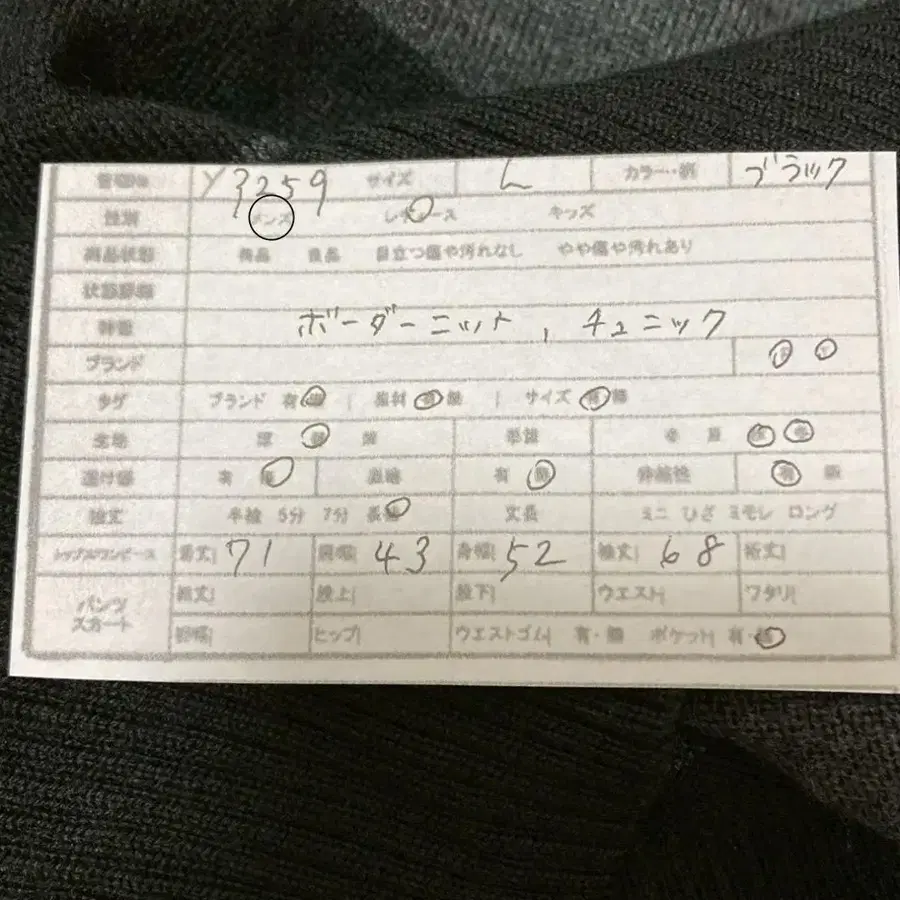 管理No Y3259 サイズ L カラー・柄 ブラック
性別 メンズ レディース キッズ
商品状態 美品 良品 目立つ傷や汚れなし やや傷や汚れあり
状態詳細
特徴 ボーダーニット, チュニック
ブランド
タグ ブランド 有 無 | 素材 有 無 | サイズ 有 無
生地 厚 普 薄 季節 春 夏 秋 冬
裏地 有 無 伸縮性 有 無
袖丈 半袖 5分 7分 長袖 丈長 ミニ ひざ ミモレ ロング
トップス/ワンピース 着丈| 71 肩幅| 43 身幅| 52 袖丈| 68 裄丈|
パンツ スカート 総丈| 股上| 股下| ウエスト| ワタリ|
裾幅| ヒップ| ウエストゴム 有・無 ポケット| 有・無